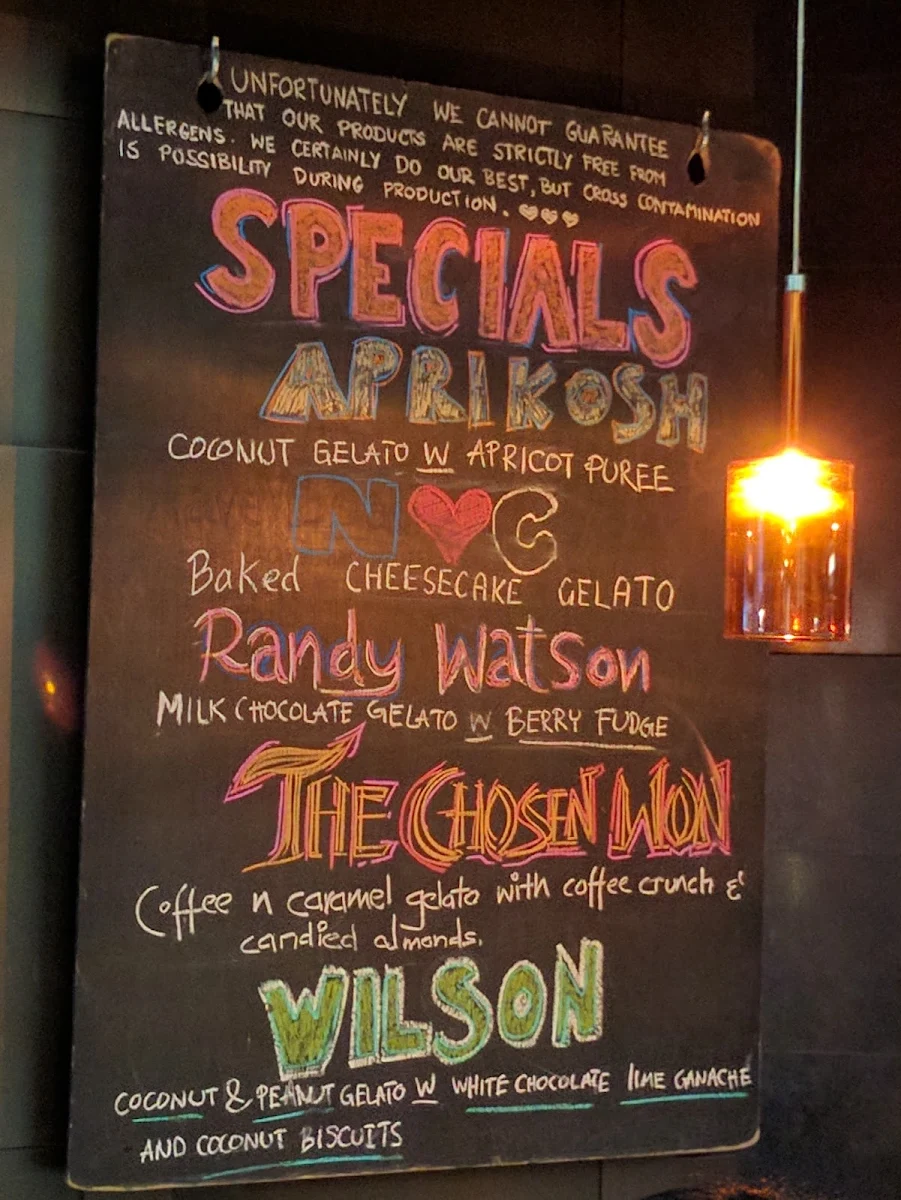 UNFORTUNATELY WE CANNOT GUARANTEE
THAT OUR PRODUCTS ARE STRICTLY FREE FROM
ALLERGENS. WE CERTAINLY DO OUR BEST, BUT CROSS CONTAMINATION
IS POSSIBILITY DURING PRODUCTION.
SPECIALS
APRIKOSH
COCONUT GELATO W APRICOT PUREE
N ♥ C
Baked CHEESECAKE GELATO
Randy Watson
MILK CHOCOLATE GELATO W BERRY FUDGE
THE CHOSEN WON
Coffee n caramel gelato with coffee crunch &
candied almonds.
WILSON
COCONUT & PEANUT GELATO W WHITE CHOCOLATE LIME GANACHE
AND COCONUT BISCUITS